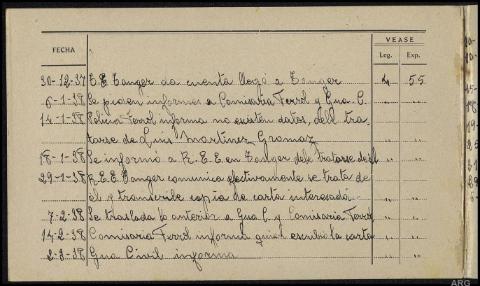 VEASE
FECHA
Leg. Exp.
30-12-37 R.E. Tanger da cuenta llegó a Tanger 4 55
6-1-38 Se piden informes a Comisaria Ferrol y Gua. C. " "
14-1-38 Policia Ferrol informa no existen datos, debe tra- " "
tarse de Luis Martinez Gromaz " "
18-1-38 Se informó a R.E.E en Tanger debe tratarse de él " "
29-1-38 R.E.E. Tanger comunica efectivamente se trata de " "
él y transcribe copia de carta interesado. " "
7-2-38 Se traslada lo anterior a Gua C. y Comisaria Ferrol " "
14-2-38 Comisaria Ferrol informa quien escribió la carta " "
2-3-38 Gua Civil informa " "
ARG